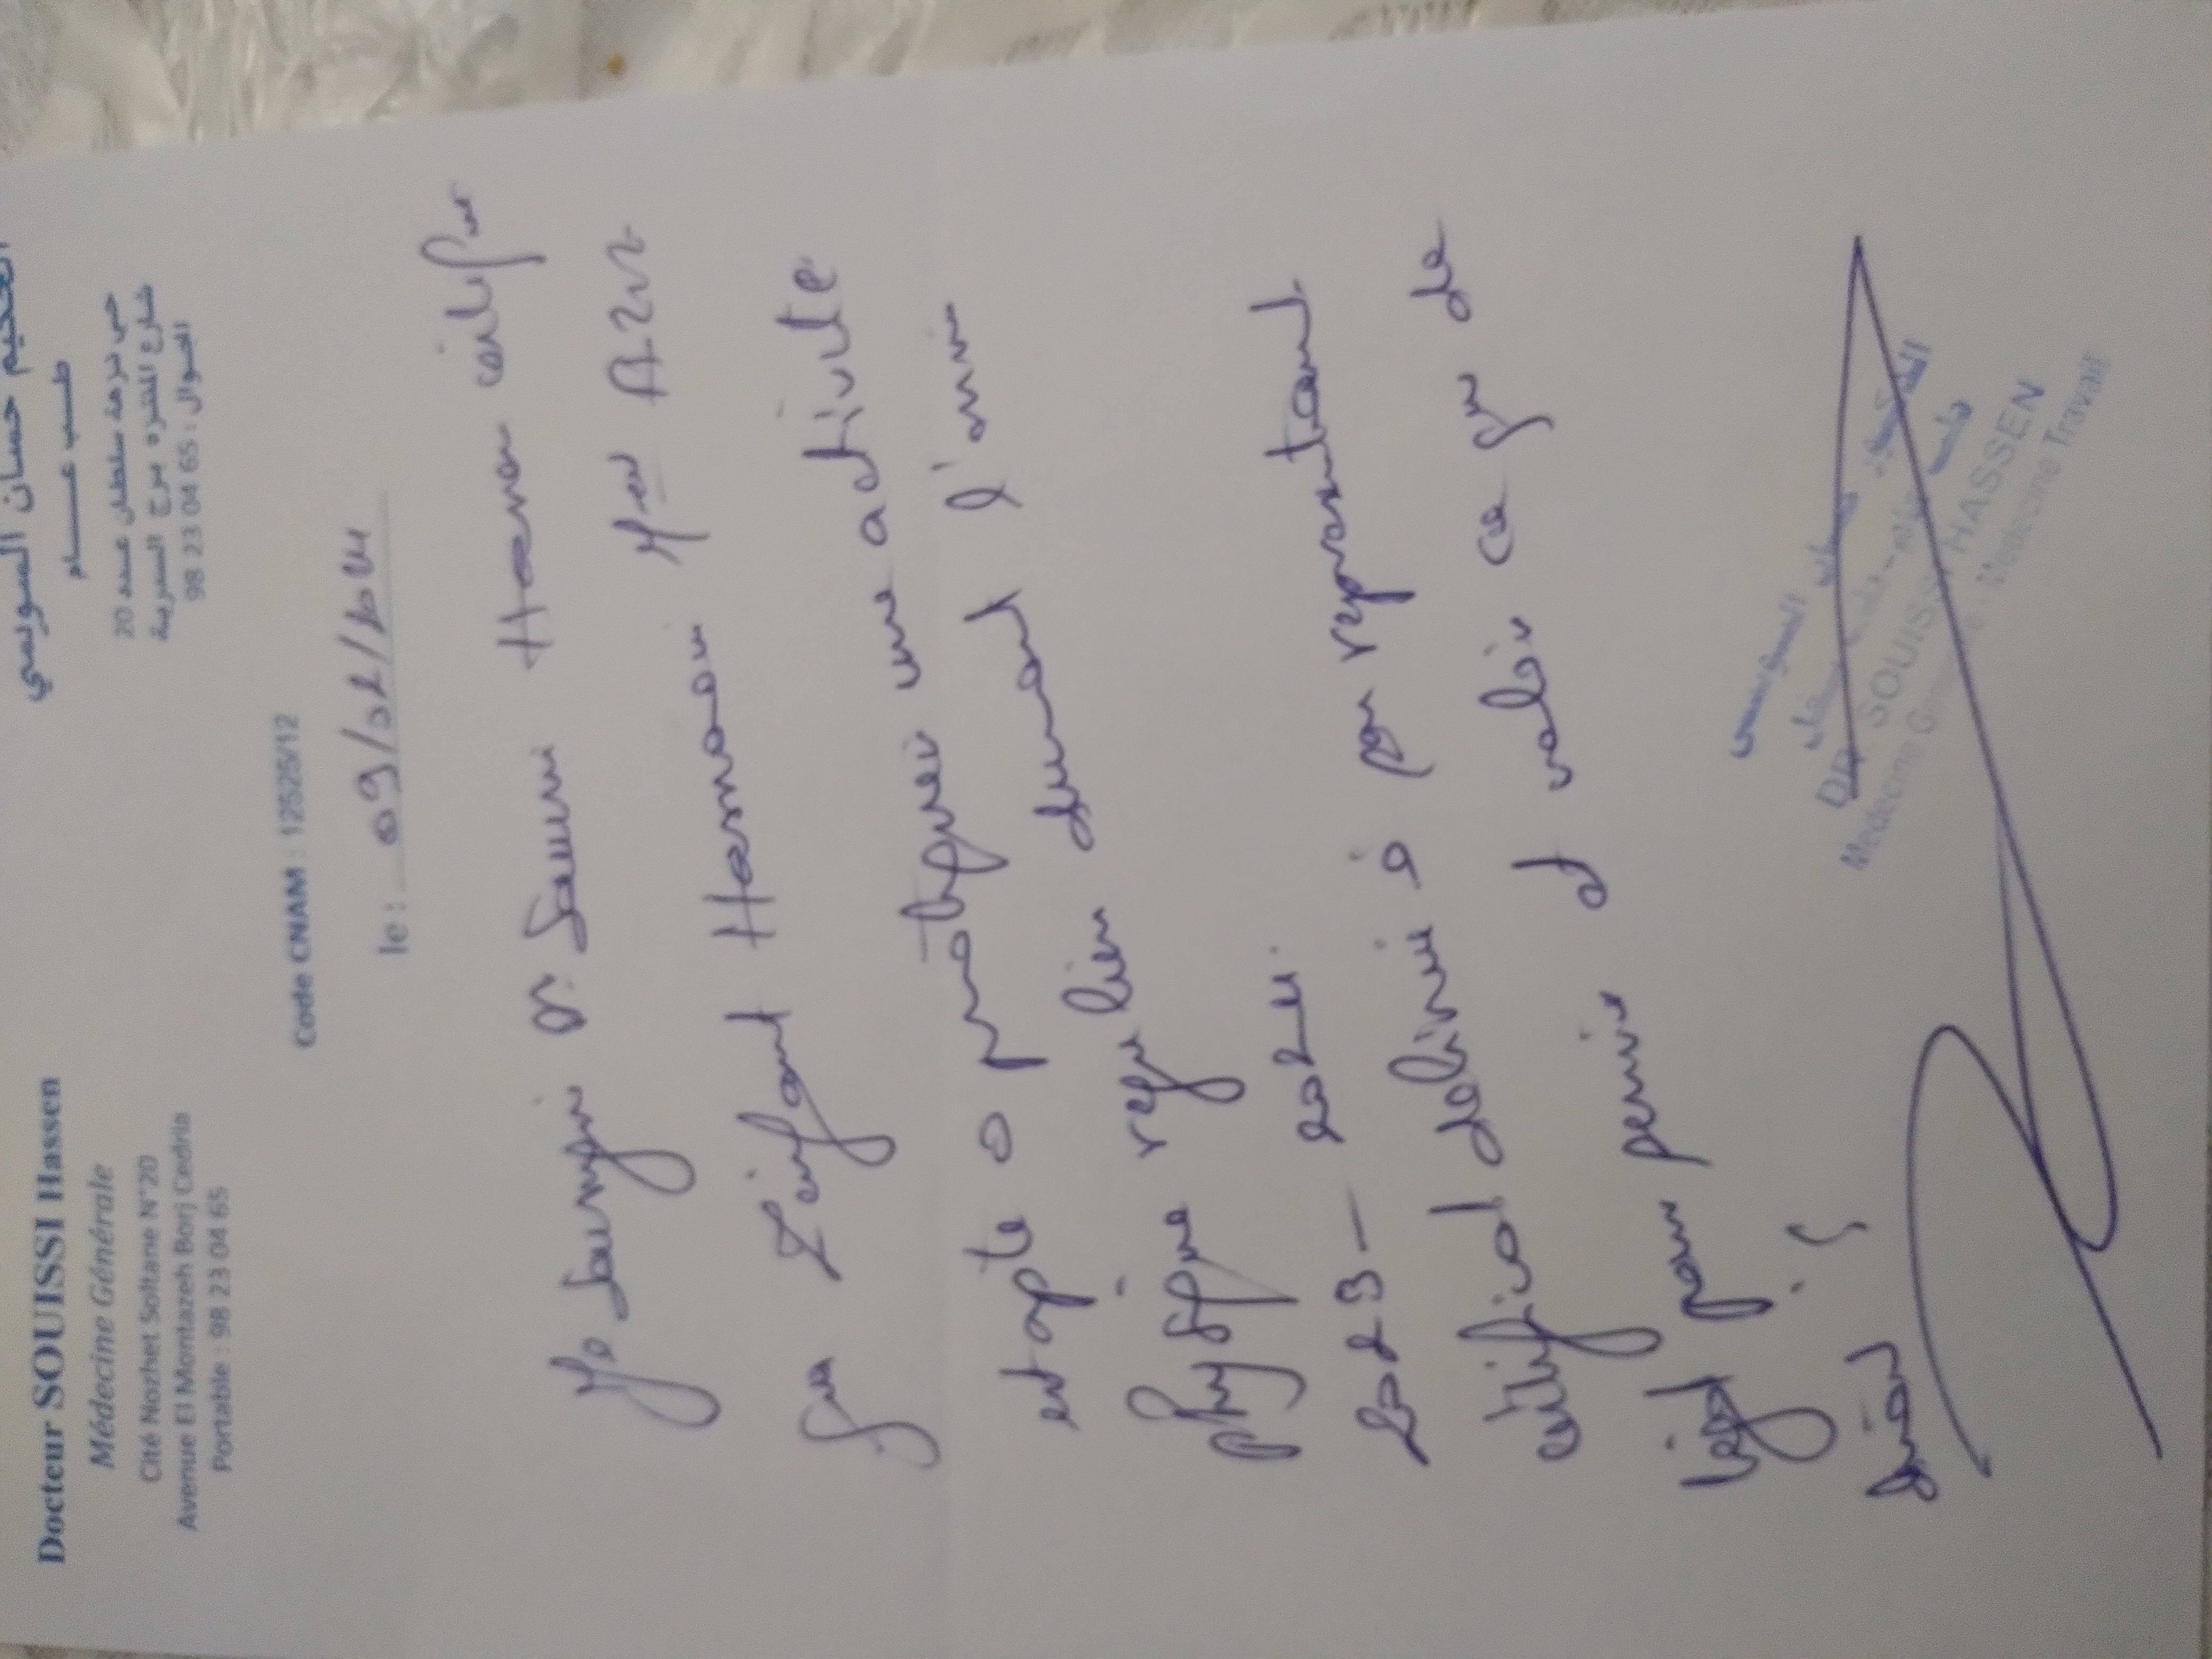 Docteur SOUISSI Hassen
Médecine Générale
Cité Nozhet Soltane N°20
Avenue El Montazeh Borj Cedria
Portable : 98 23 04 65
الحكيم حسان السويسي
طـب عـــام
حي نزهة سلطان عـدد 20
شارع المنتزه برج السدرية
الجـوال : 98 23 04 65
Code CNAM : 12525/12
le : 09/02/2024
Je Soussigné Dr Souissi Hassen certifie
que l'enfant
apte a pratiquer une activité
physique régulière durant l'année
2023 - 2024.
certificat délivré à son représentant
légal pour servir et valoir ce que de
droit
DR SOUISSI HASSEN
Medecine Travail